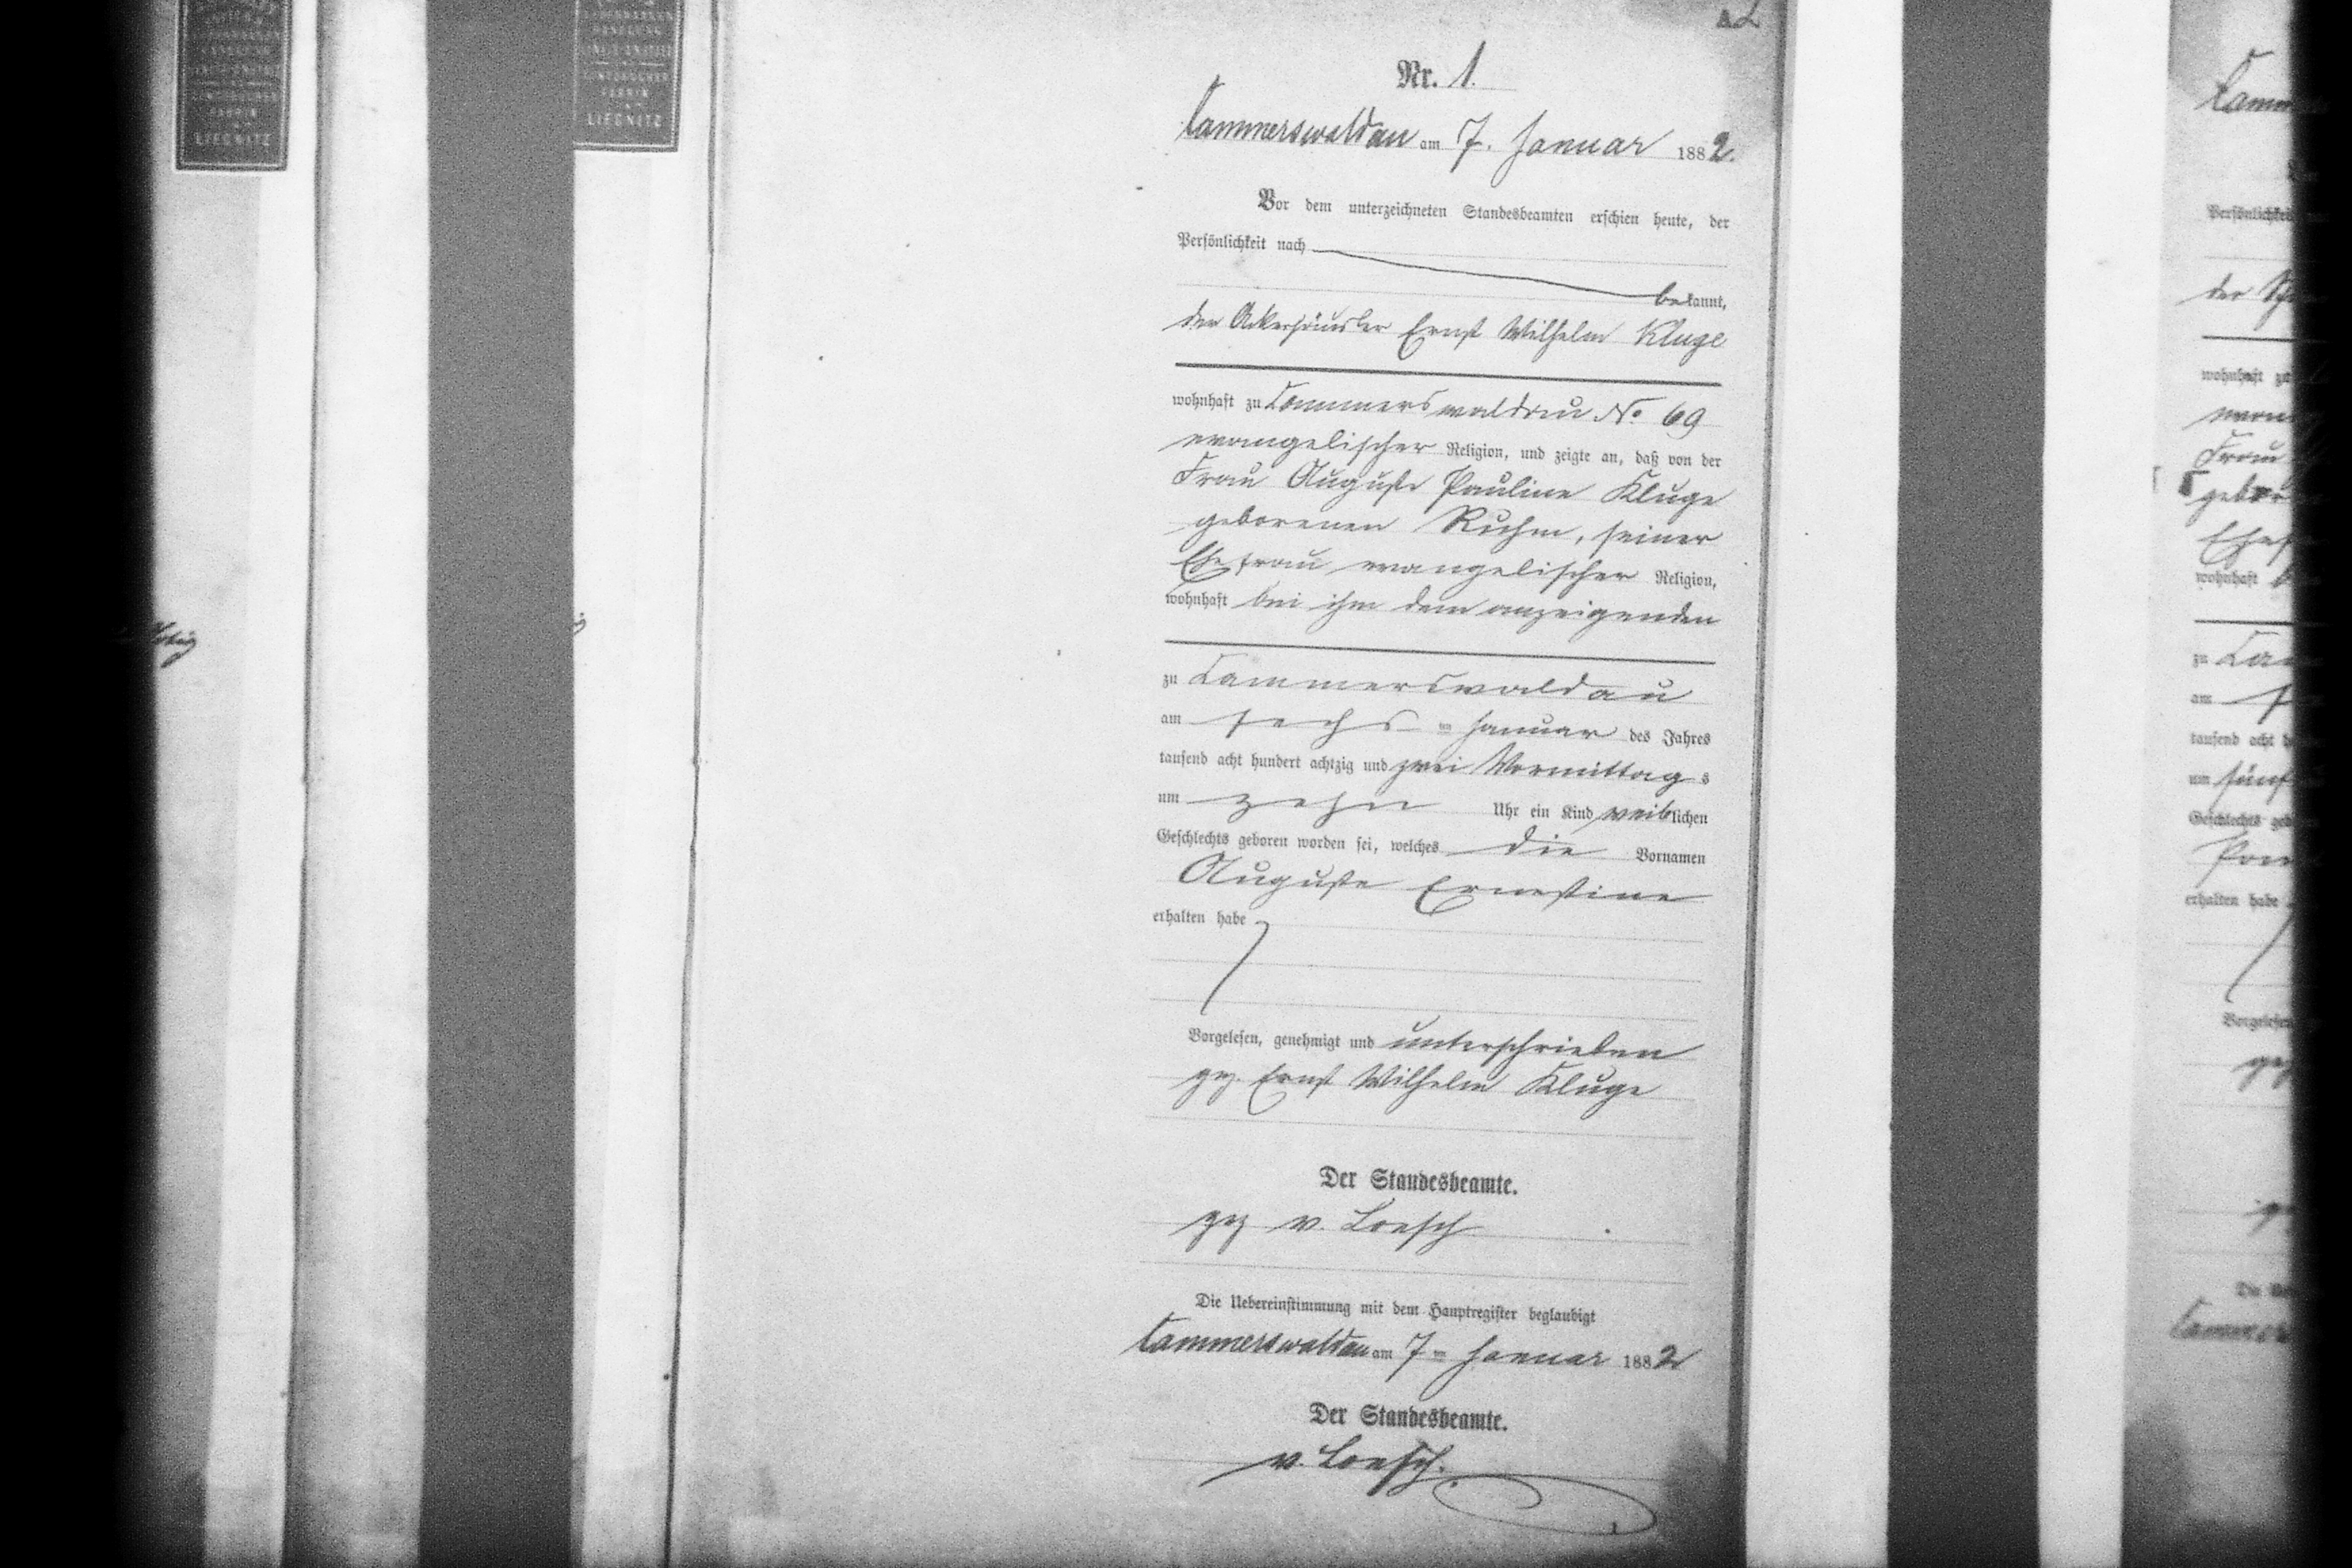 LIEGNITZ
LIEGNITZ
Nr. 1.
Cammerswaldau am 7. Januar 1882.
Vor dem unterzeichneten Standesbeamten erschien heute, der
Persönlichkeit nach
bekannt,
der Ackerhäusler Ernst Wilhelm Kluge
wohnhaft zu Cammerswaldau No. 69
evangelischer Religion, und zeigte an, daß von der
Frau Auguste Pauline Kluge
geborenen Ruhm, seiner
Ehefrau evangelischer Religion,
wohnhaft bei ihm dem anzeigenden
zu Cammerswaldau
am sechs ten Januar des Jahres
tausend acht hundert achtzig und zwei Vormittags
um zehn Uhr ein Kind weiblichen
Geschlechts geboren worden sei, welches die Vornamen
Auguste Ernestine
erhalten habe
Vorgelesen, genehmigt und unterschrieben
gez. Ernst Wilhelm Kluge
Der Standesbeamte.
gez v. Loesch
Die Uebereinstimmung mit dem Hauptregister beglaubigt
Cammerswaldau am 7ten Januar 1882
Der Standesbeamte.
v. Loesch.
Persönlichkeit
der
wohnhaft zu
Frau
wohnhaft
zu
am
tausend acht
um fünf
Geschlechts
erhalten habe
Vorgelesen
gez
Die